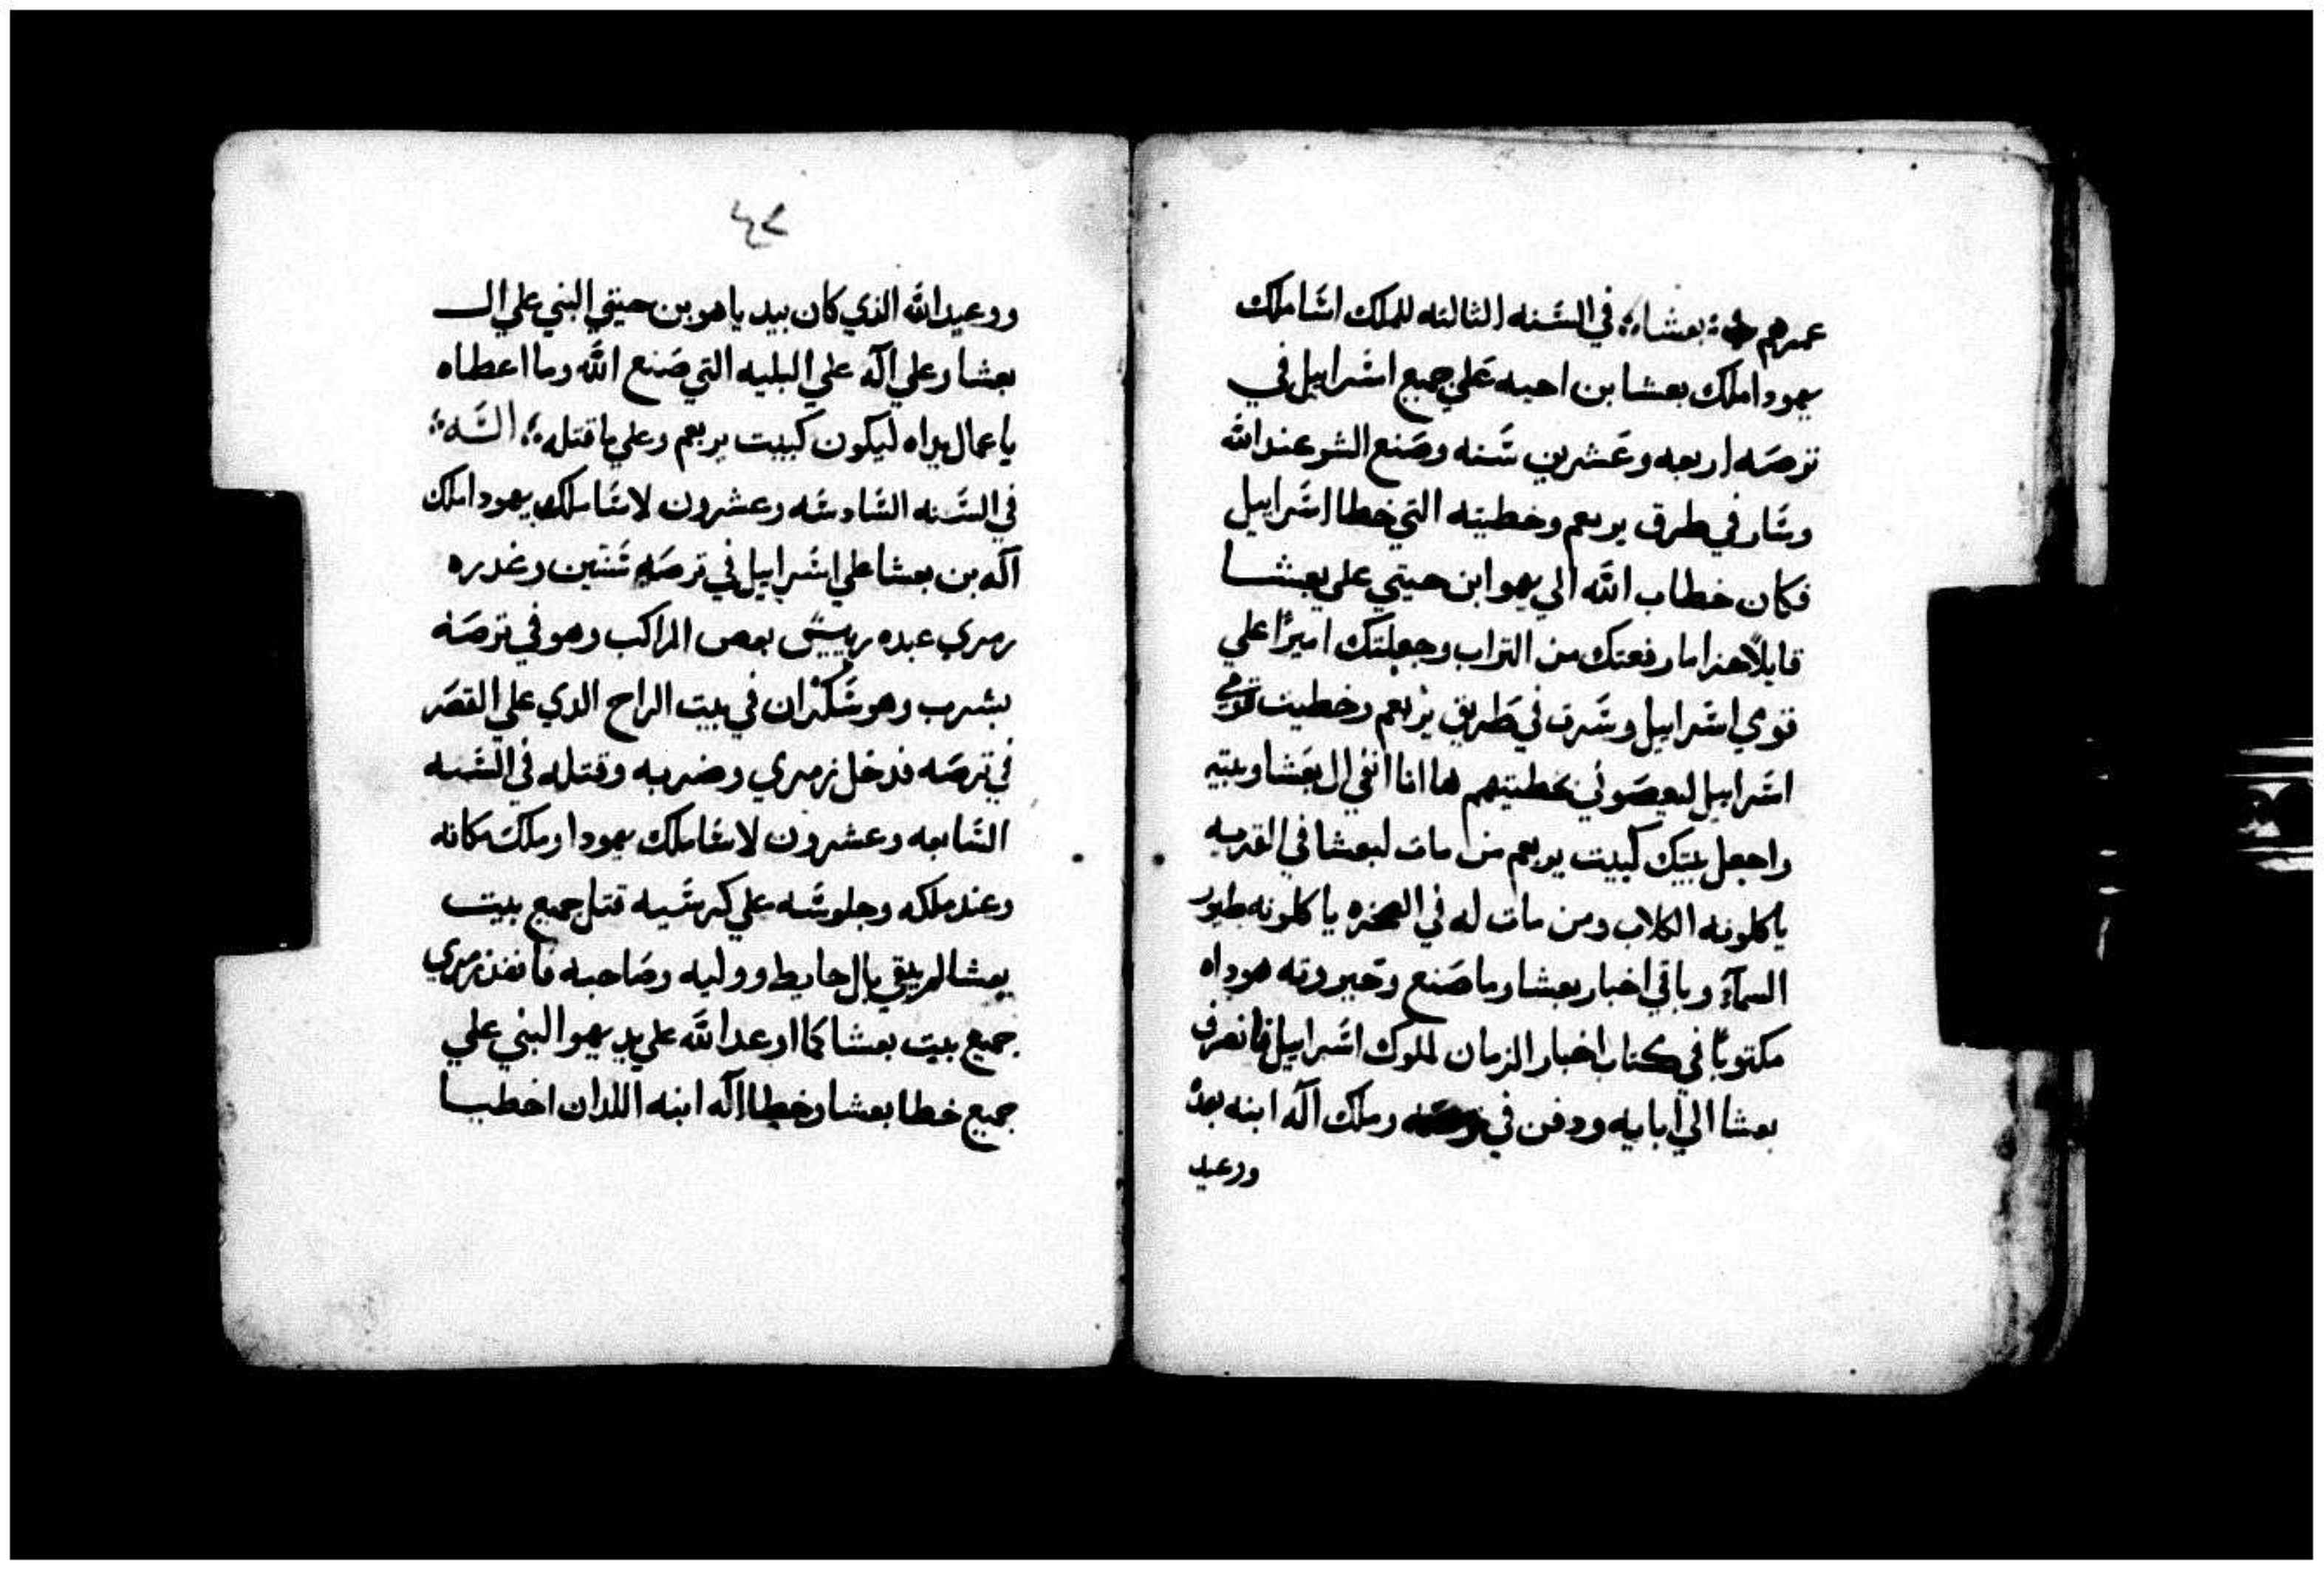 عمرهم بعشا في السَّنه الثالثه للملك اسَا ملك
يهودا ملك بعشا بن احيه عَلي جميع اسَرابيل في
ترصَه اربعه وعَشرين سَنه وصَنع الشر عند الله
وسَار في طرق يربعم وخطيته التي خطا اسَرابيل
فكان خطاب الله الي يهوا بن حيتي علي بعشا
قايلاً هذا ما رفعتك من التراب وجعلتك اميرًا علي
قوي اسَرابيل وسَرت في طَريق يربعم وخطيت قومي
اسَرابيل ليعصَوني بخطيتهم ها انا انفي ال بعَشا وبيته
واجعل بيتك كبيت يربعم من مات لبعشا في القريه
ياكلونه الكلاب ومن مات له في الصحره ياكلونه طيور
السمآء وباقي اخبار بعشا وما صَنع وتجبروته هوداه
مكتوبًا في كتاب اخبار الزمان لملوك اسَرابيل فانصرف
بعشا الي ابايه ودفن في ترصَه وملك آله ابنه بعدهُ
ووعيد
٤٧
ووعيد الله الذي كان بيد ياهو بن حيتي النبي علي ال
بعشا وعلي آله علي البليه التي صَنع الله وما اعطاه
ياعمال يداه ليكون كبيت يربعم وعلي ما قتله السَّه
في السَّنه السَّادسَه وعشرون لاسَا ملك يهودا ملك
آله بن بعشا علي اسَرابيل في ترصَه سَنتين وغدره
زمري عبده رييسَ بعض المراكب وهو في ترصَه
بشرب وهو سَكران في بيت الراح الدي علي القصَر
في ترصَه فدخل زمري وضربه وقتله في السَّنه
السَّابعه وعشرون لاسَا ملك يهودا وملك مكانه
وعند ملكه وجلوسَه علي كرسَيه قتل جميع بيت
بعشا لم يبقي بال حايط ووليه وصَاحبه فانفذ زمري
جميع بيت بعشا كما اوعد الله علي يد يهو النبي علي
جميع خطا بعشا وخطا آله ابنه اللدان اخطيا